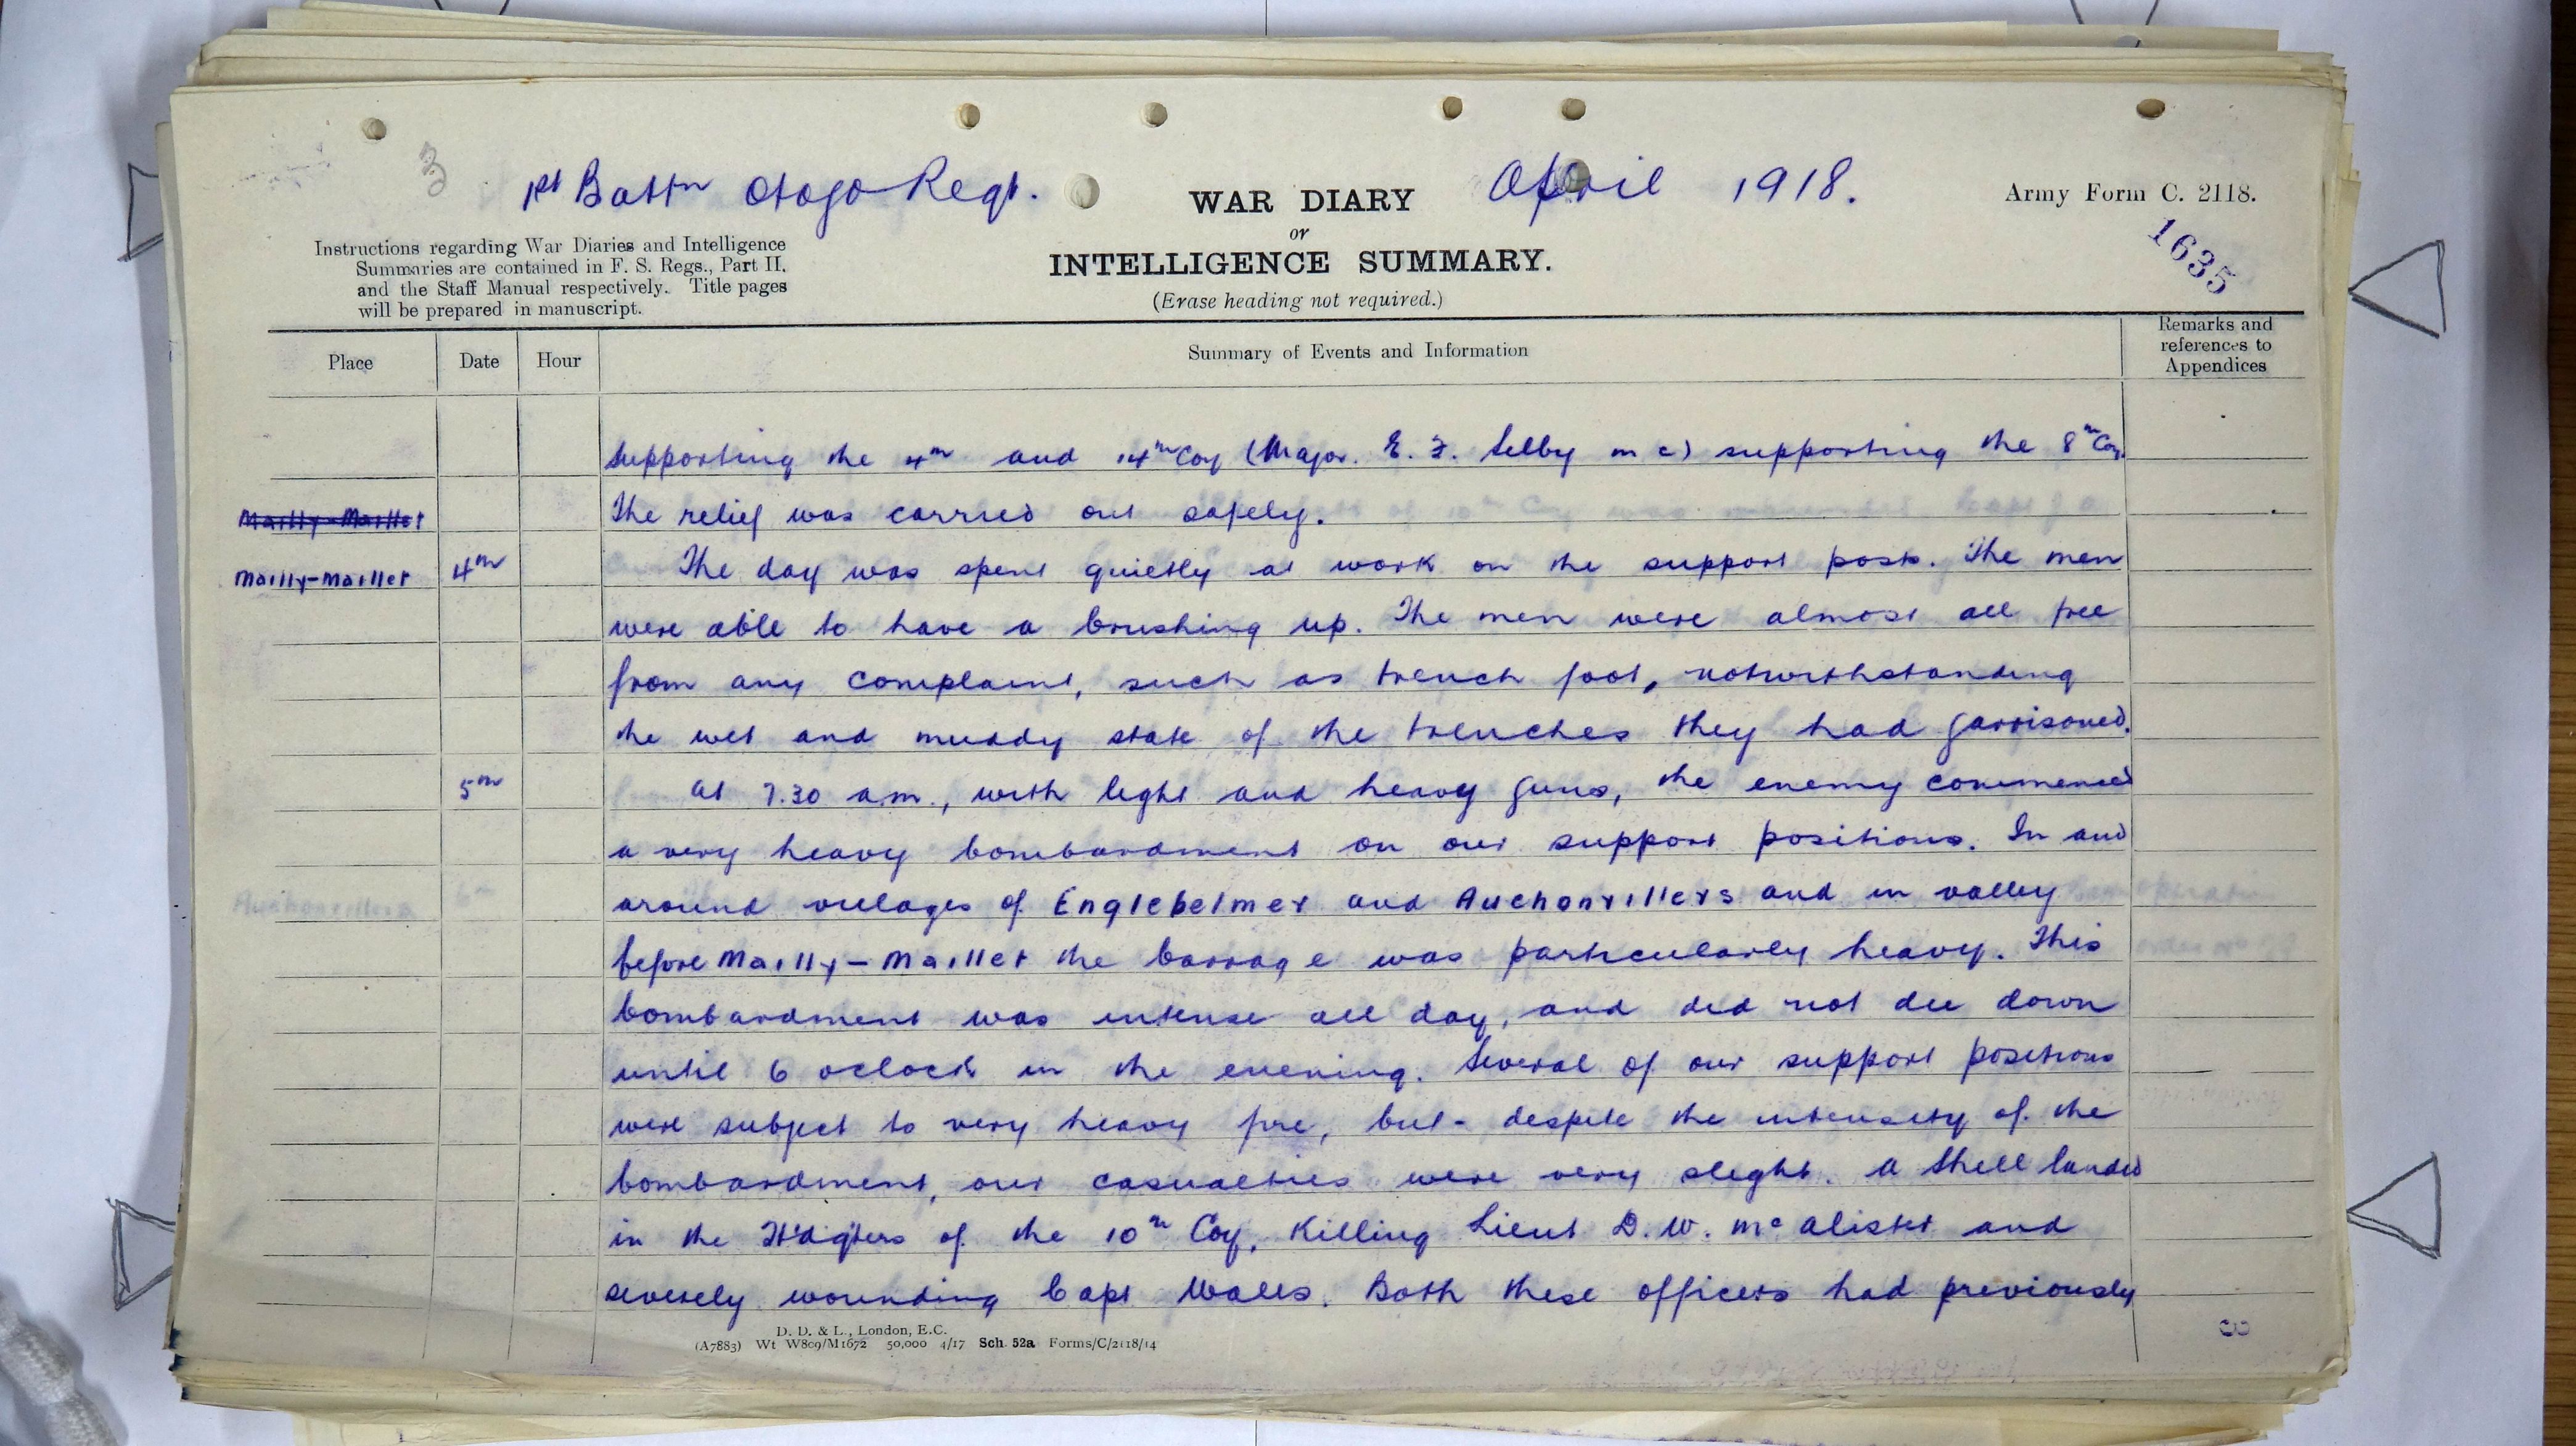 3
1st Battn Otago Regt.
WAR DIARY
April 1918.
Army Form C. 2118.
or
INTELLIGENCE SUMMARY.
(Erase heading not required.)
1635
Instructions regarding War Diaries and Intelligence
Summaries are contained in F. S. Regs., Part II.
and the Staff Manual respectively. Title pages
will be prepared in manuscript.
Place Date Hour Summary of Events and Information
Remarks and
references to
Appendices
supporting the 4th and 14th Coy (Major. E. F. Selby m c) supporting the 8th Coy.
Mailly-Maillet The relief was carried out safely.
Mailly-Maillet 4th The day was spent quietly at work on the support posts. The men
were able to have a brushing up. The men were almost all free
from any complaint, such as trench foot, notwithstanding
the wet and muddy state of the trenches they had garrisoned.
5th At 7.30 a.m., with light and heavy guns, the enemy commenced
a very heavy bombardment on our support positions. In and
around villages of Englebelmer and Auchonvillers and in valley
before Mailly-Maillet the barrage was particularly heavy. This
bombardment was intense all day, and did not die down
until 6 oclock in the evening. Several of our support positions
were subject to very heavy fire, but - despite the intensity of the
bombardment, our casualties were very slight. A Shell landed
in the Hdqters of the 10th Coy, Killing Lieut D. W. McAlister and
severely wounding Capt Walls. Both these officers had previously
D. D. & L., London, E.C.
(A7883) Wt W809/M1672 50,000 4/17 Sch. 52a Forms/C/2118/14